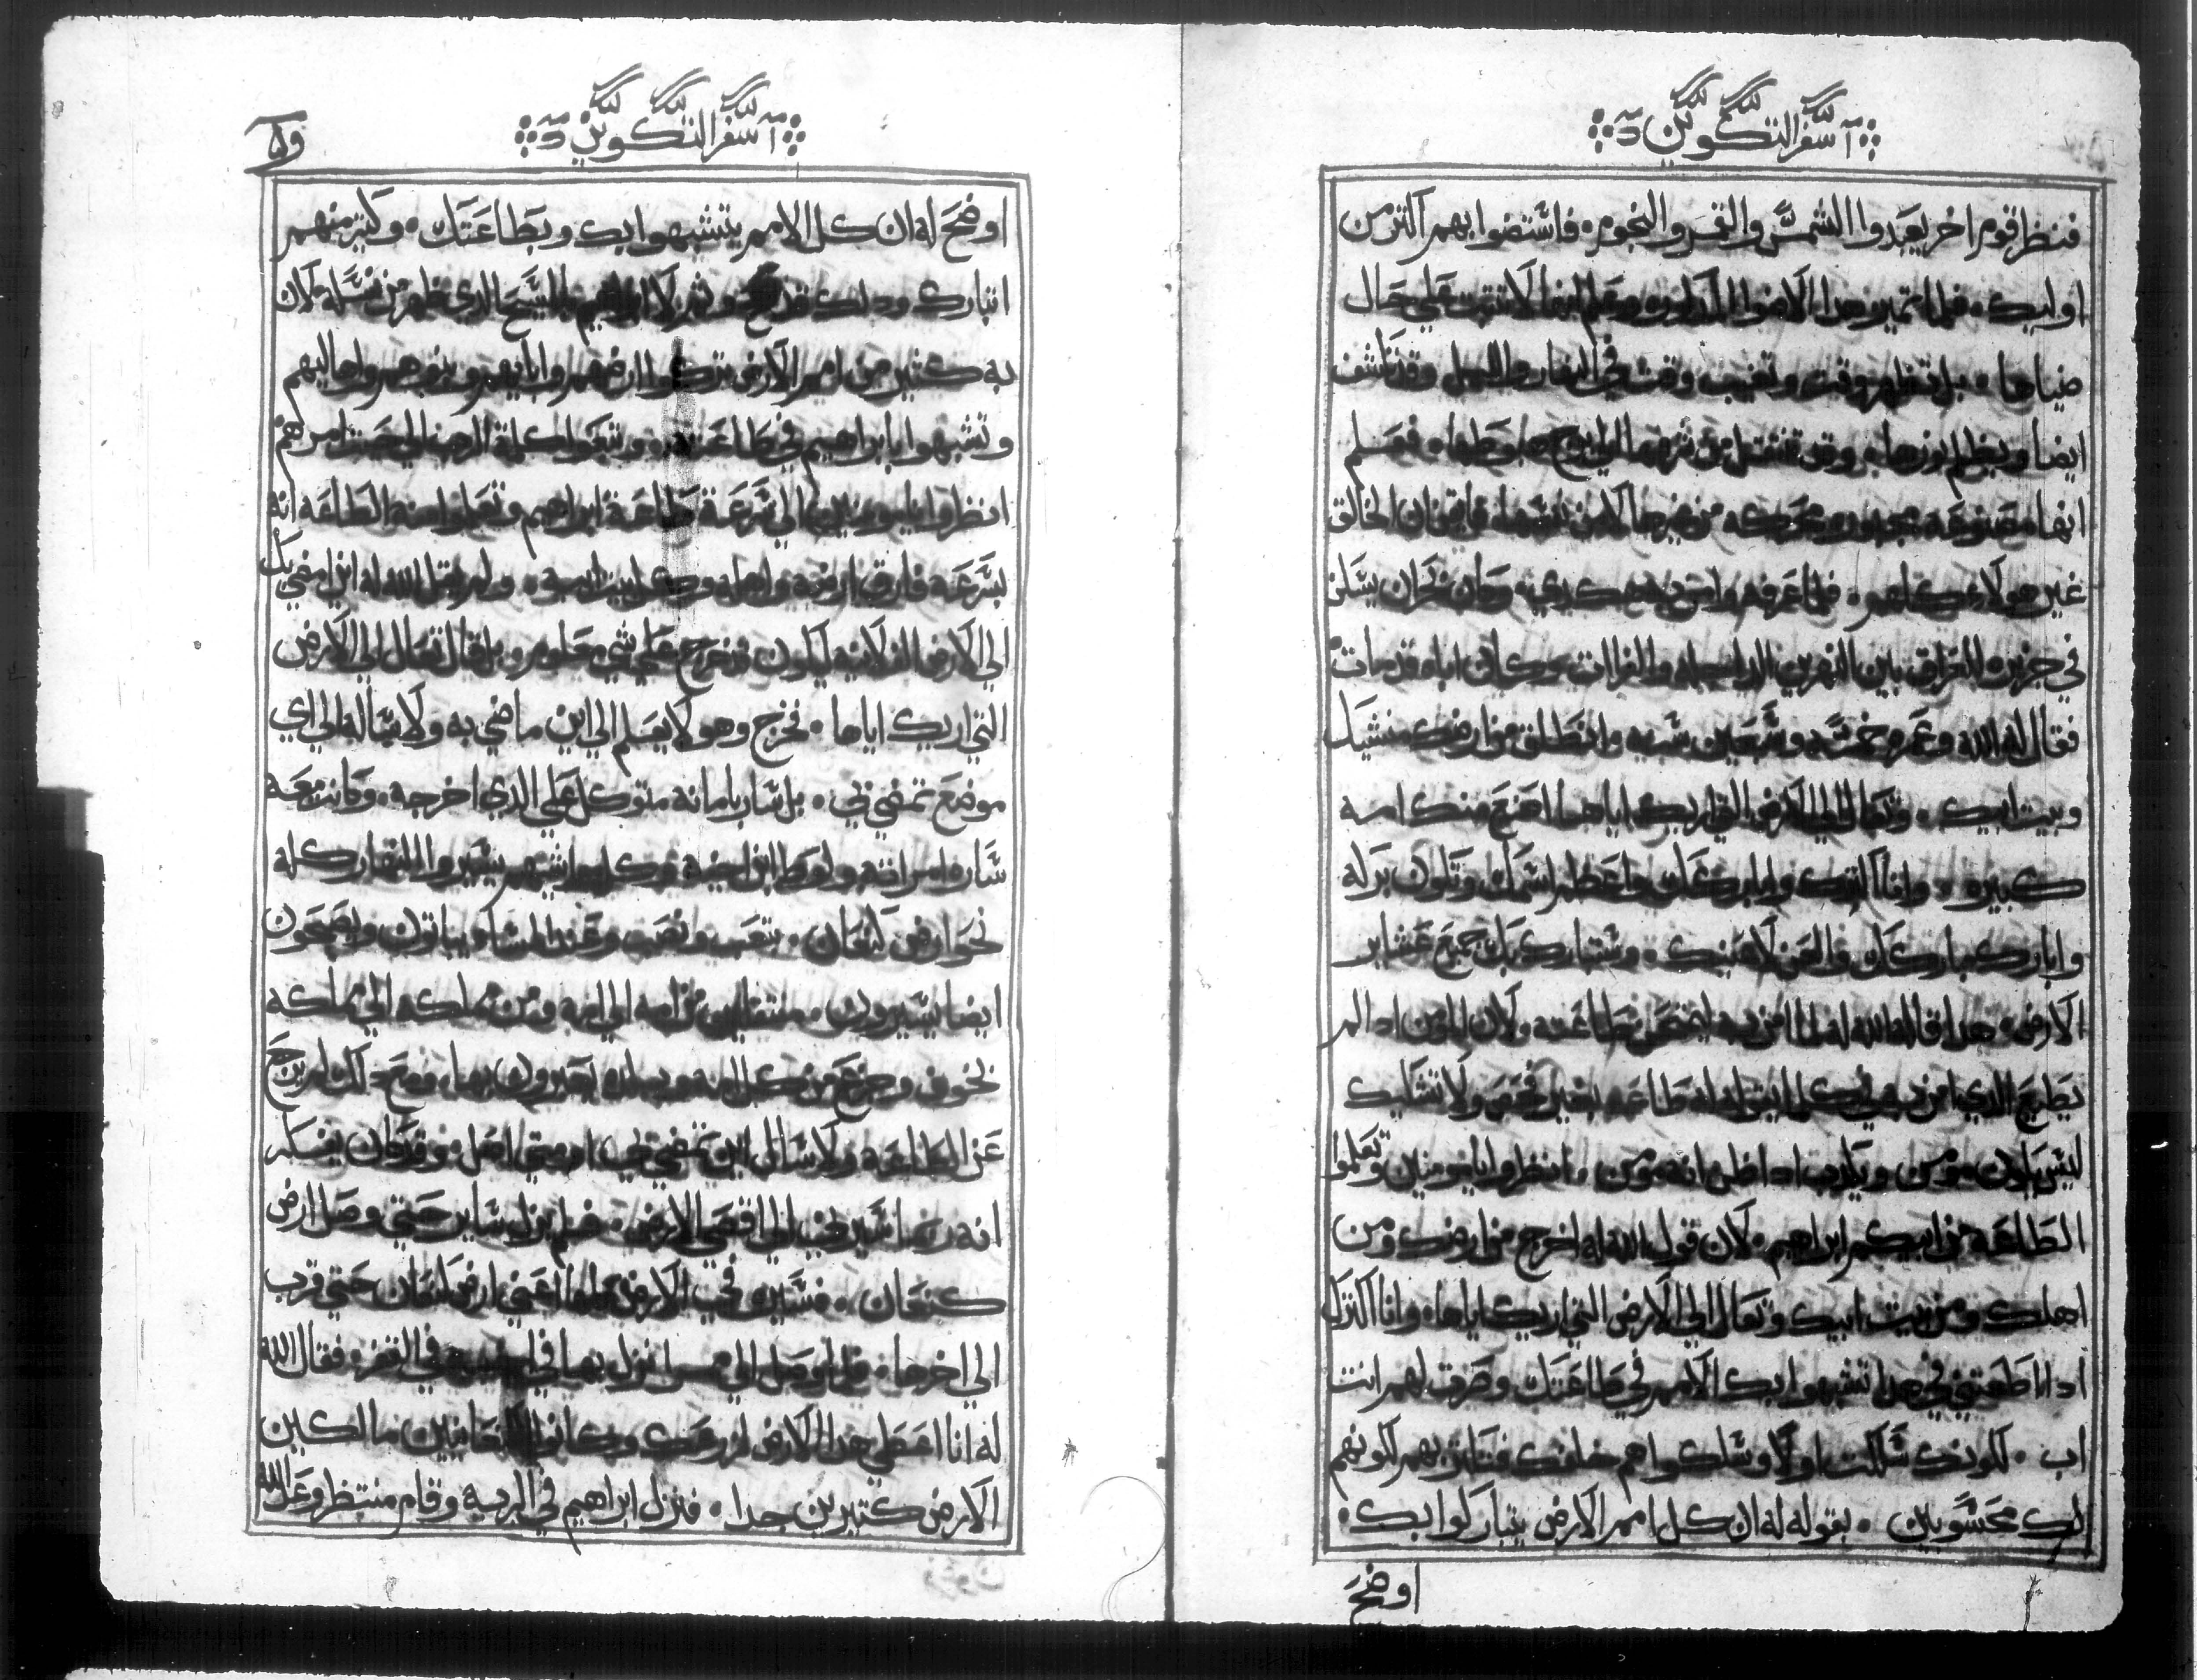 سفر التكوين
فنظر اقوم اخر يعبدوا الشمس والقمر والنجوم. فاستضوا بهم اكتر من
اوليك. فلما تميز هدا الامور وعلم انها لا تتبت علي حال
ضياها. بل تظهر وقت وتغيب وقت في النهار والليل وقد تاشف
ايضا ويظلم نورها. وقد تنتقل من الي فعلم
انها مصنوعه مجبوره ومحركه من غيرها لا من نفسها. فايقن ان الخالق
غير هولاء كلهم. فلما عرفه وامن به وكان بحران يسكن
في جزيره العراق بين النهرين الدجله والفرات وكان اباه قد مات
فقال له الله وعمره خمسه وسبعين سنه. انطلق من ارضك
وبيت ابيك. وتعال الي الارض التي اريك اياها اصنع منك امه
كبيره. وانا اكترك وابارك عليك واعظم اسمك وتكون بركه
وابارك مباركك والعن لاعنيك. وتتبارك بك جميع عشاير
الارض. هدا قاله الله له لما امن به ليمتحن بطاعته ولان المومن ادا لم
يطيع الدي امن به في كل ما يقوله له طاعه بغير فحص ولا تشكيك
ليس يكون مومن ويكدب ادا ظن انه مومن. انظروا يا مومنين وتعلموا
الطاعه من ابيكم ابراهيم. لان قول الله له اخرج من ارضك ومن
اهلك ومن بيت ابيك وتعال الي الارض التي اريك اياها. وانا اكترك
ادا اطعتني في هدا تشبهوا بك الامم في طاعتك وصرت لهم انت
اب. لكونك سلكت اولا وسلكوا هم خلفك فتكتر بهم لكونهم
لك محسوبين. بقوله له ان كل امم الارض يتباركوا بك.
اوضح
سفر التكوين
اوضح له ان كل الامم يتشبهوا بك وبطاعتك. وكتير منهم
اتبارك ودلك قد لابراهيم بالمسيح الدي ظهر من نسله لان
به كتير من امم الارض تركوا ارضهم وابايهم وبنوهم واهاليهم
وتشبهوا بابراهيم في طاعته. وتبعوا كلمة الرب الي حيت امرهم
انظروا يا مومنين الي سرعة طاعة ابراهيم وتعلموا منه الطاعه انه
بسرعه فارق ارضه واهله وكل بيت ابيه. ولم يقل الله له ان امضي بك
الي الارض الفلانيه ليكون خرج علي شي معلوم. بل قال تعال الي الارض
التي اريك اياها. فخرج وهو لا يعلم الي اين ماضي به ولا ساله الي اي
موضع تمضي بي. بل سار بامانه متوكل علي الدي اخرجه. وكانت معه
ساره امراته ولوط ابن اخيه وكل ماشيتهم يسيروا النهار كله
نحو ارض كنعان. بتعب ونصب وعند المسا يباتون ويصبحون
ايضا يسيرون. منتقلين من امه الي امه ومن مملكه الي مملكه
بخوف وجزع من كل امه ومملكه يعبرون بها. ومع دلك لم يرجع
عن الطاعه ولا سال اين تمضي بي او متي اصل. وقد كان يفكر
انه ربما اسير بي الي اقصي الارض. فلم يزل ساير حتي وصل ارض
كنعان. فسيره في الارض كلها اعني ارض كنعان حتي قرب
الي اخرها. فلما وصل الي نزل بها في في القفر فقال الله
له انا اعطي هدا الارض لزرعك وكانوا الكنعانيين مالكين
الارض كتيرين جدا. فنزل ابراهيم في البريه وقام منتظر وعد الله